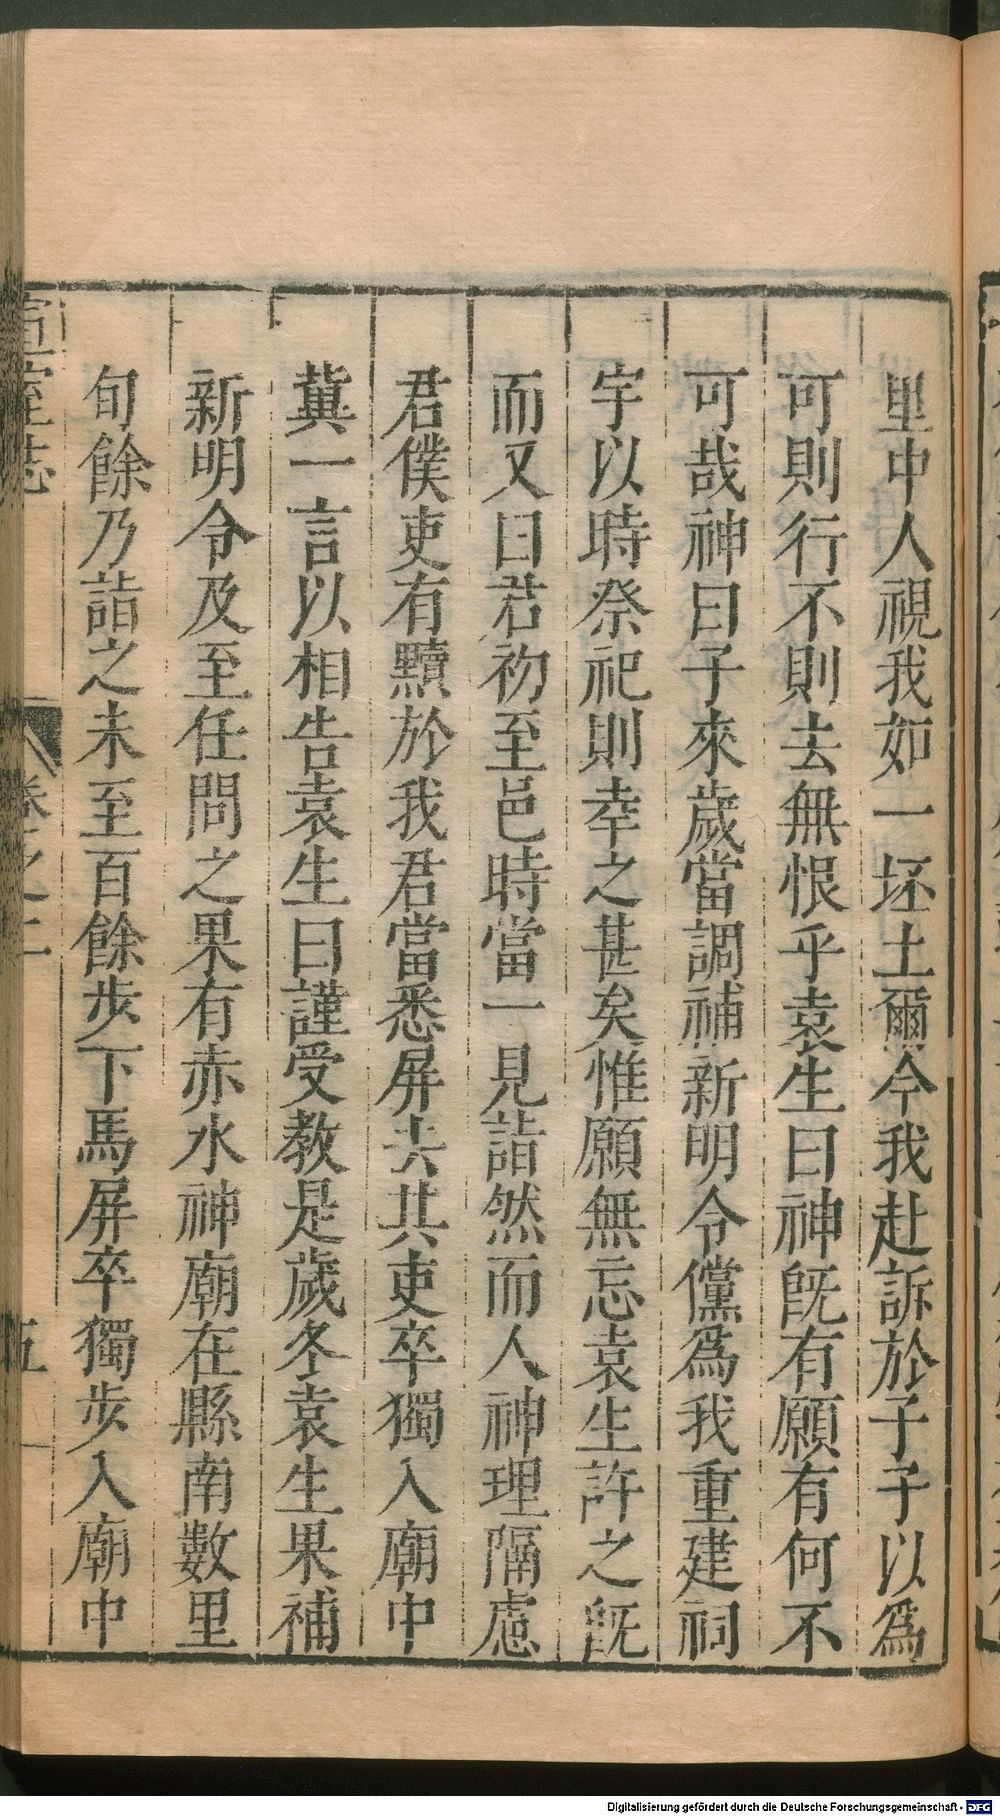 里中人視我如一坯土爾今我赴訴於子子以爲
可則行不則去無恨乎袁生曰神旣有願有何不
可哉神曰子來歲當調補新明令儻爲我重建祠
宇以時祭祀則幸之甚矣惟願無忘袁生許之旣
而又曰君初至邑時當一見詣然而人神理隔慮
君僕吏有黷於我君當悉屏去其吏卒獨入廟中
冀一言以相告袁生曰謹受教是歲冬袁生果補
新明令及至任問之果有赤水神廟在縣南數里
旬餘乃詣之未至百餘步下馬屏卒獨步入廟中
宣室志 卷之二 五
Digitalisierung gefördert durch die Deutsche Forschungsgemeinschaft - DFG